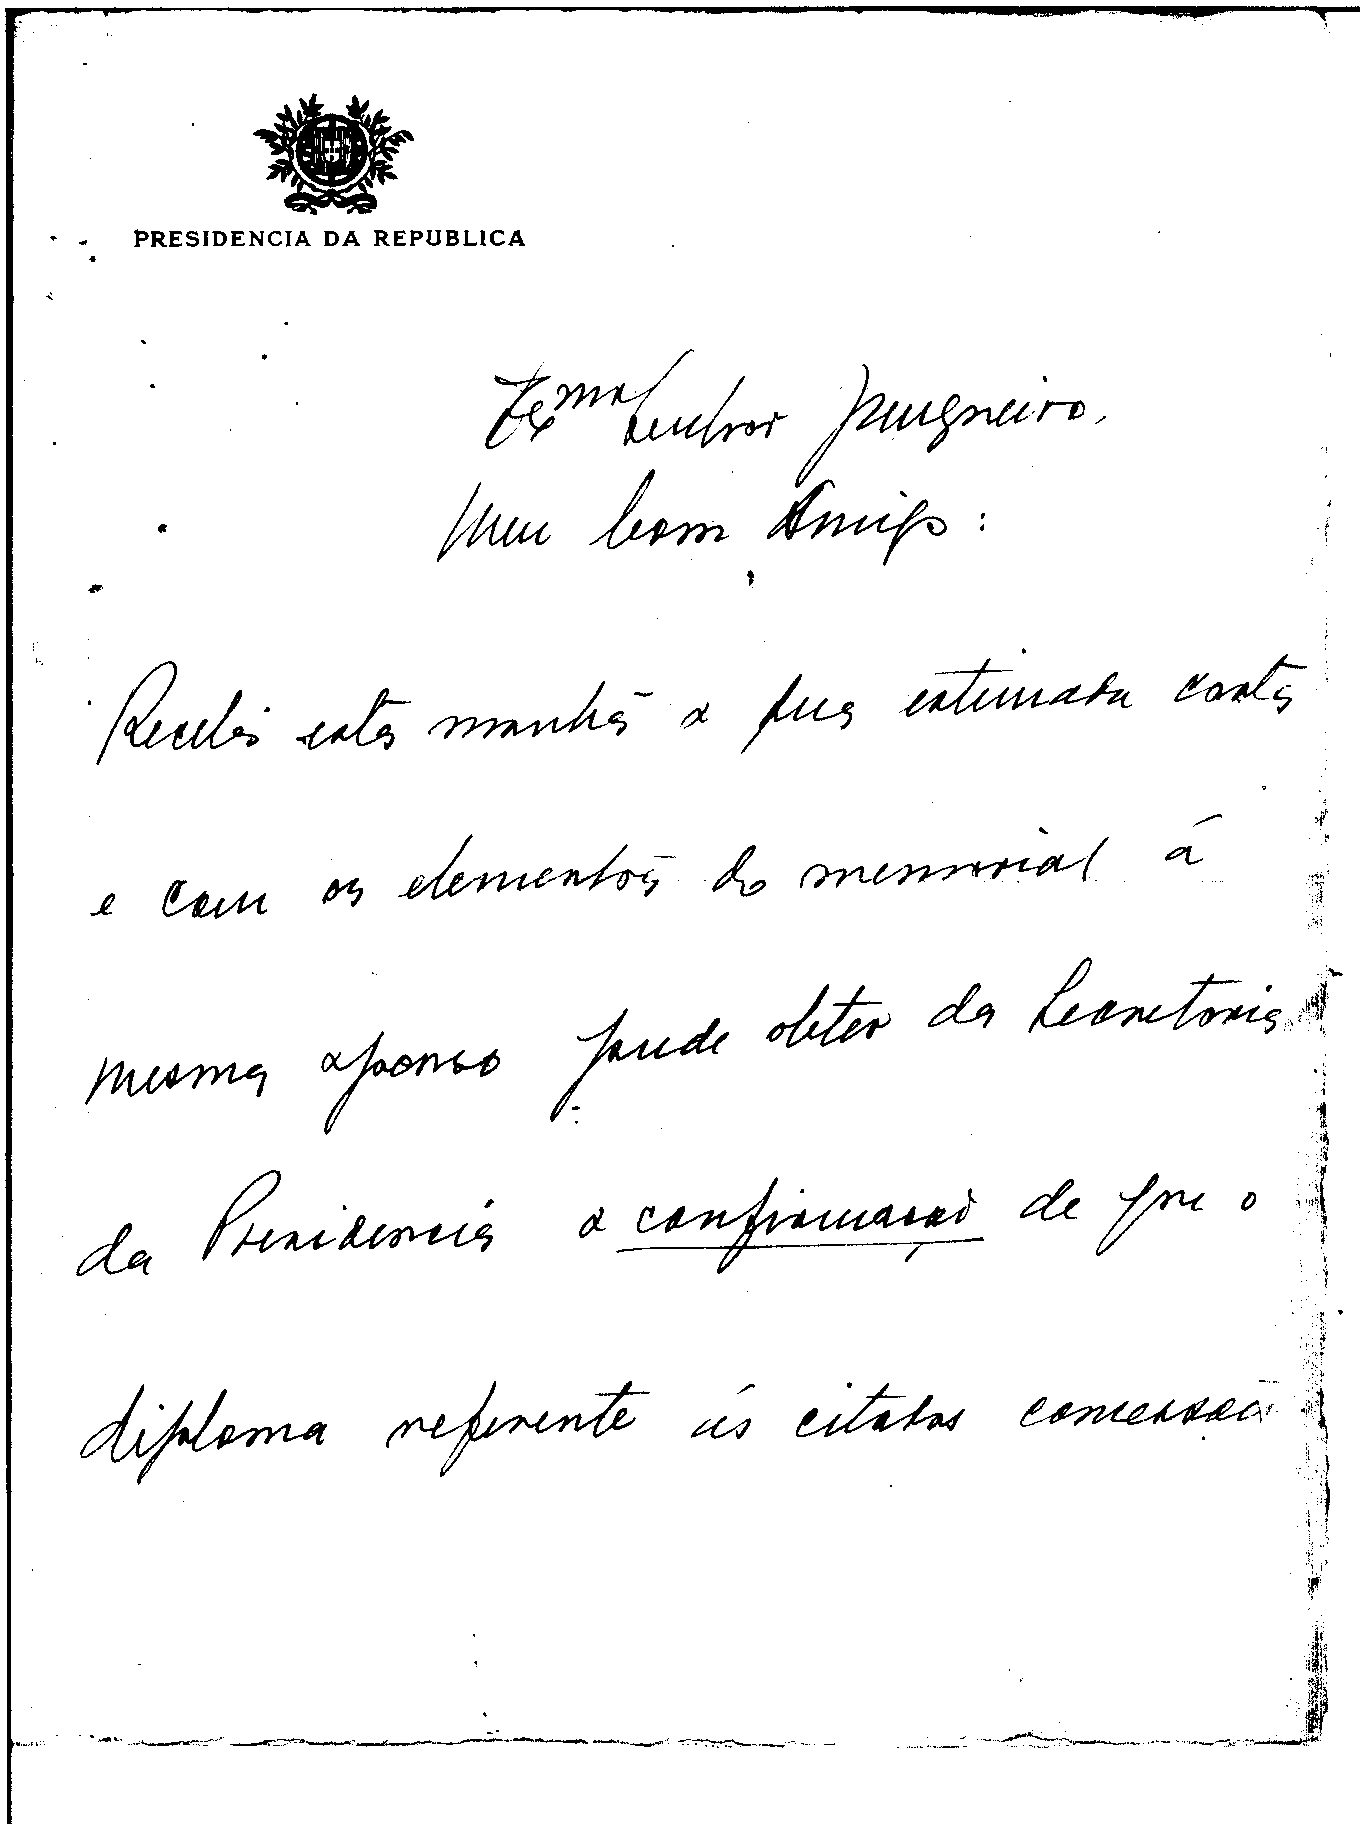 PRESIDENCIA DA REPUBLICA
Exmo Senhor
Meu bom Amigo:
Recebi esta manhã a sua estimada carta
e com os elementos do memorial á
mesma apenso pude obter da Secretaria
da Presidencia a confirmação de que o
diploma referente ás citadas